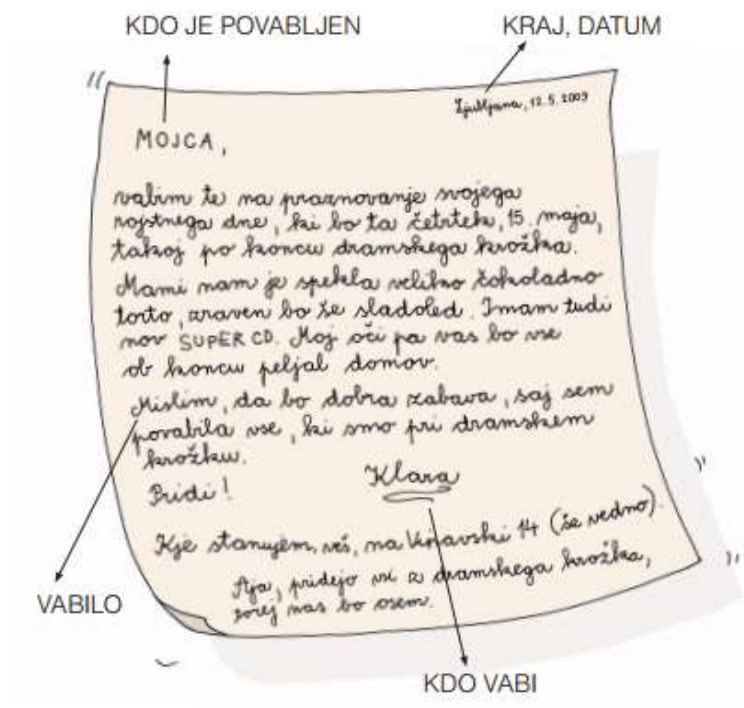 KDO JE POVABLJEN
KRAJ, DATUM
Ljubljana, 12. 5. 2003
MOJCA,
vabim te na praznovanje svojega
rojstnega dne, ki bo ta četrtek, 15. maja,
takoj po koncu dramskega krožka.
Mami nam je spekla veliko čokoladno
torto, zraven bo še sladoled. Imam tudi
nov SUPER CD. Moj oči pa vas bo vse
ob koncu peljal domov.
Mislim, da bo dobra zabava, saj sem
povabila vse, ki smo pri dramskem
krožku.
Pridi!
Klara
Kje stanujem, veš, na 14 (še vedno).
Aja, pridejo vsi z dramskega krožka,
torej nas bo osem.
VABILO
KDO VABI